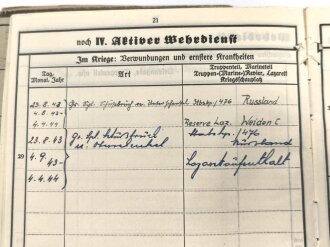 21
noch IV. Aktiver Wehrdienst
Im Kriege: Verwundungen und ernstere Krankheiten
Tag, Monat, Jahr
Art
Truppenteil, Marineteil
Truppen-(Marine-)Revier, Lazarett
Kriegsschauplatz
23.8.43 Gr. Spl. /476 Russland
4.9.43-
4.4.44 Reserve Laz. Weiden C
23.8.43 Gr. Spl. /476
u. Oberschenkel Russland
4.9.43- Lazarettaufenthalt
4.4.44